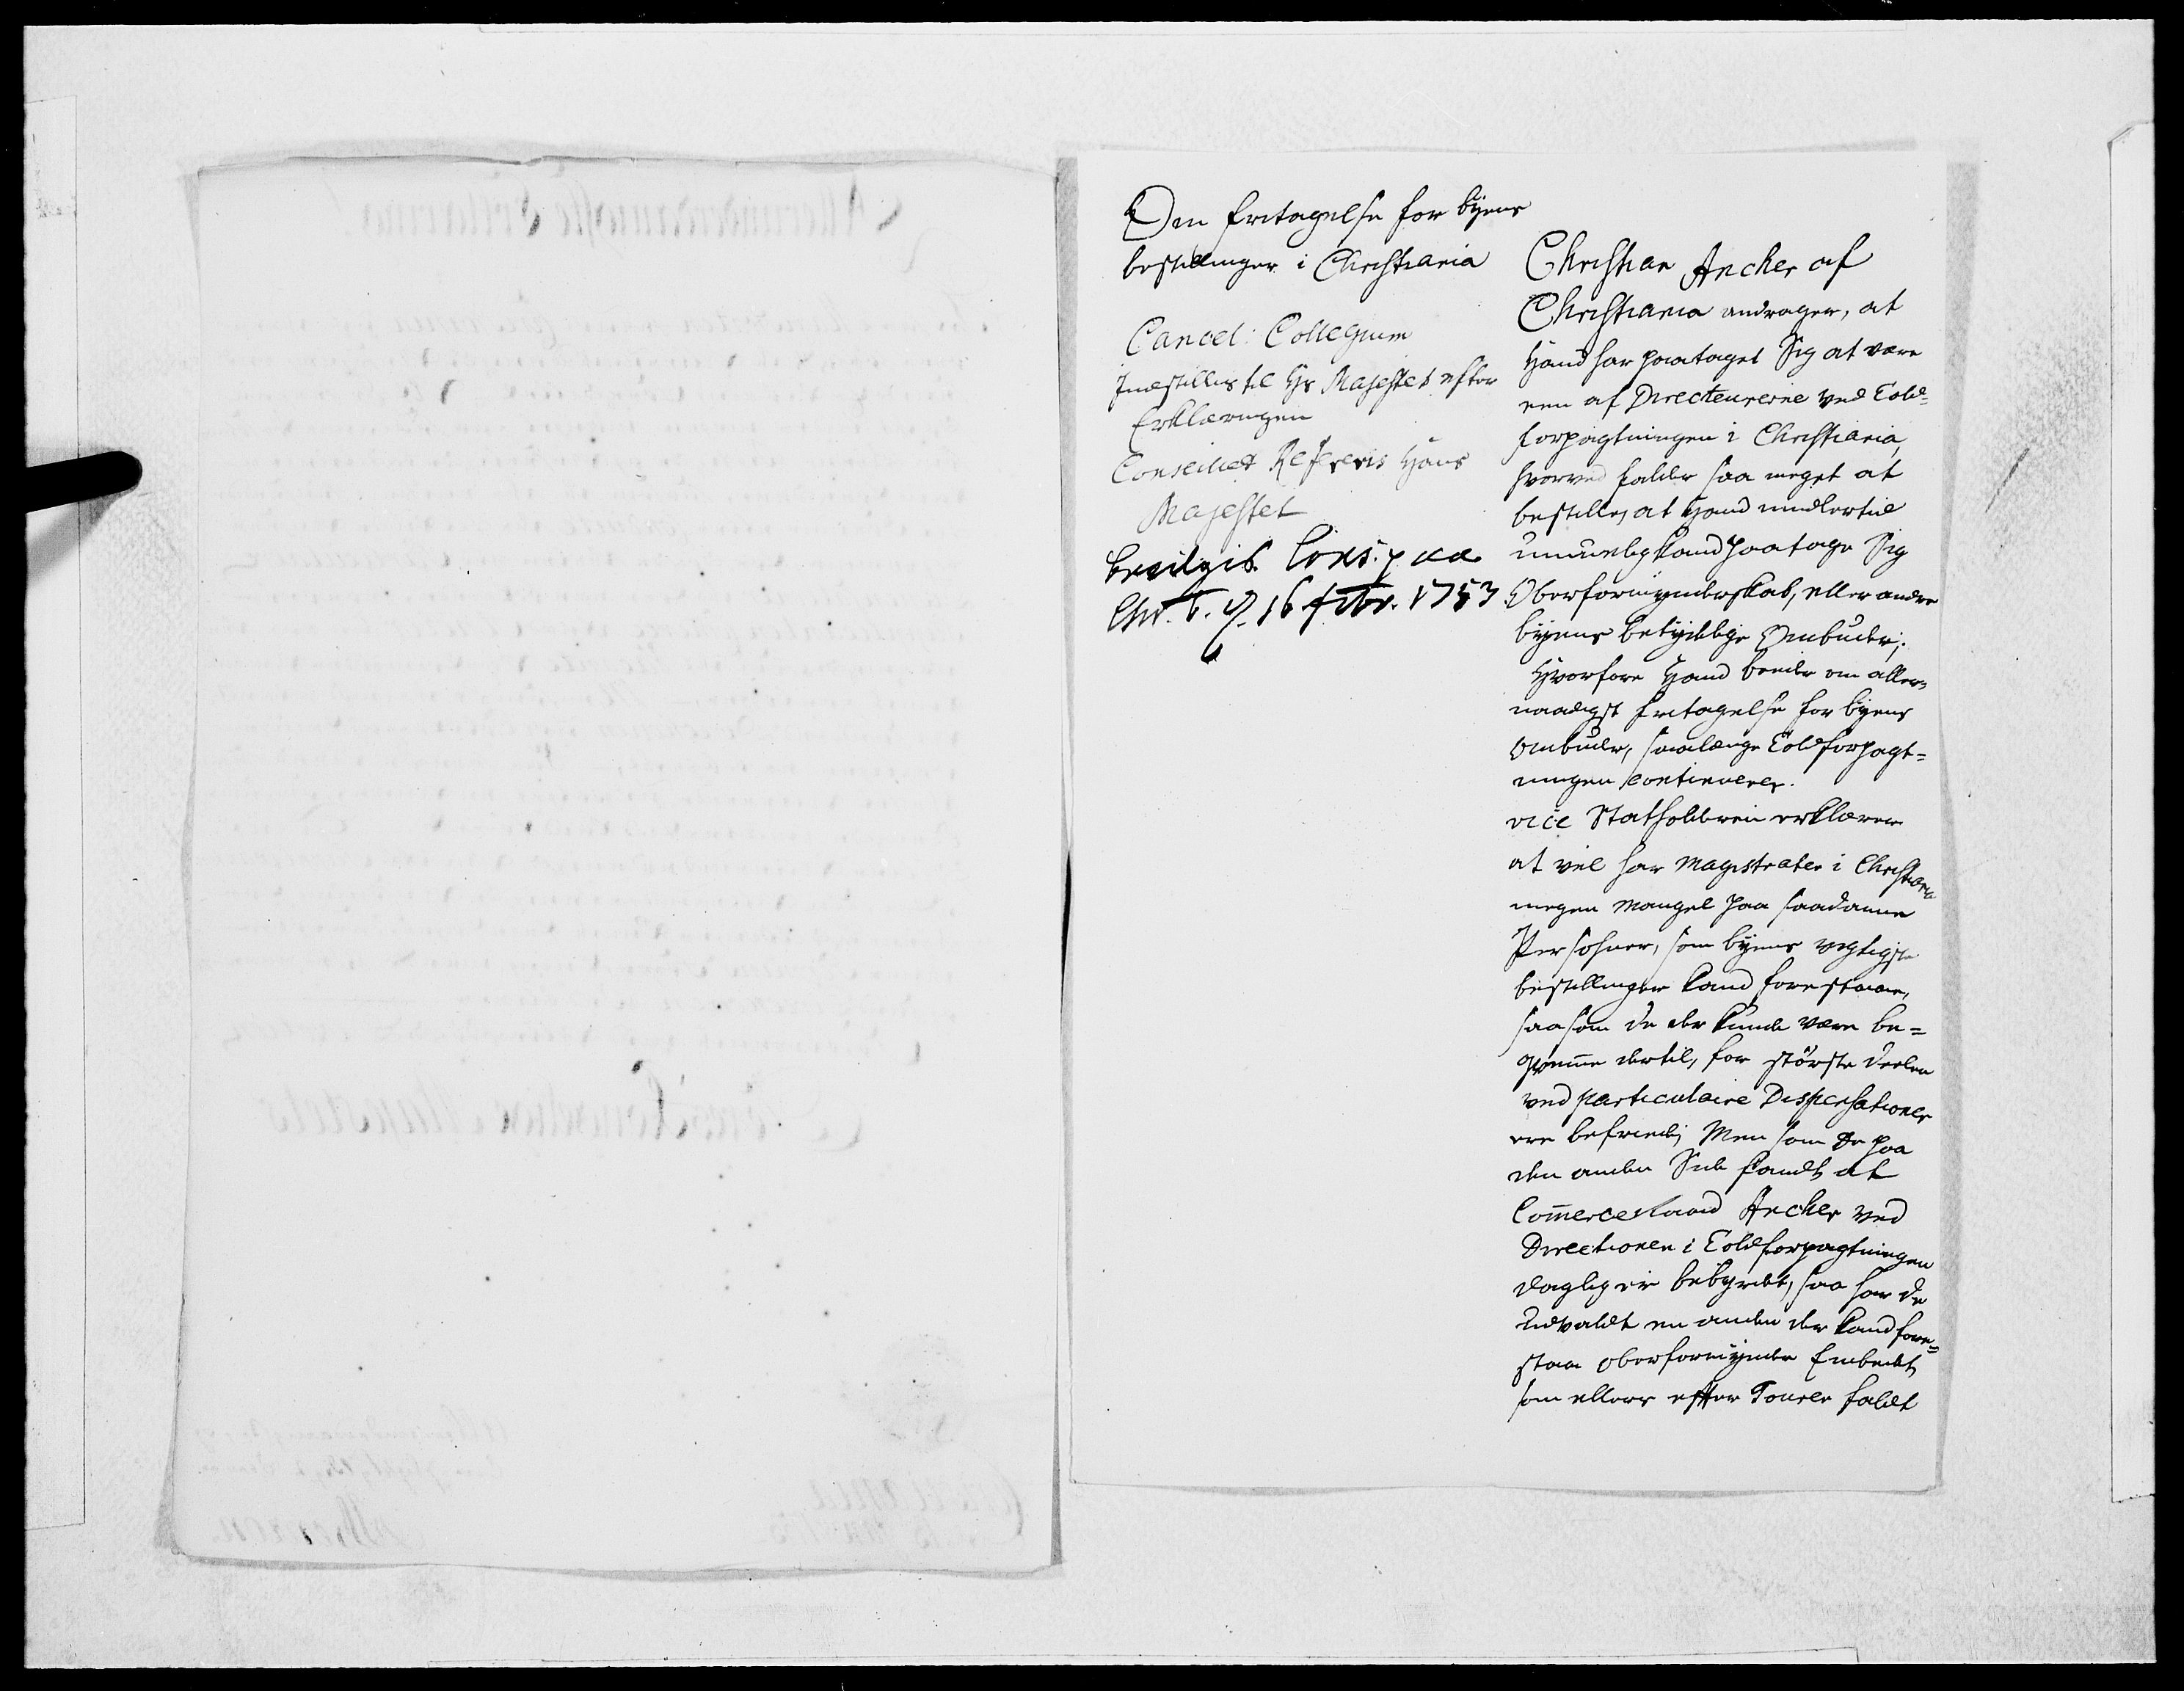 Om fritagelse for byens
bestillinger i Christiania
Cancel: Collegium
Indstillis til Hs Majestet efter
Erklæringen
Conseillet Refereris Hans
Majestet
bevilgis
Chr. b. d. 16 Febr. 1753
Christian Ancher af
Christiania andrager, at
Hand har paataget Sig at være
een af Directeurerne ved Told-
forpagtningen i Christiania,
hvorved falder saa meget at
bestille, at Hand imidlertid
umuelig kand paatage Sig
Oberformynderskab, eller andre
byens betydelige Ombuder;
Hvorfore Hand beeder om aller-
naadigst fritagelse for byens
Ombuder, saalænge Toldforpagt-
ningen continuerer.
vice Statholderen erklærer
at vel har Magistraten i Christiania
megen Mangel paa saadanne
Persohner, som byens vigtigste
bestillinger kand forestaae,
saasom de der kunde være be-
qvemme dertil, for største deelen
ved particulaire Dispensationer
ere befriede; Men som De paa
den anden Side fandt at
Commerceraad Ancher ved
Directionen i Toldforpagtningen
daglig er bebyrdet, saa har de
Udvaldt en anden der kand fore-
staae Oberformynder Embedet,
som ellers efter Touren faldt